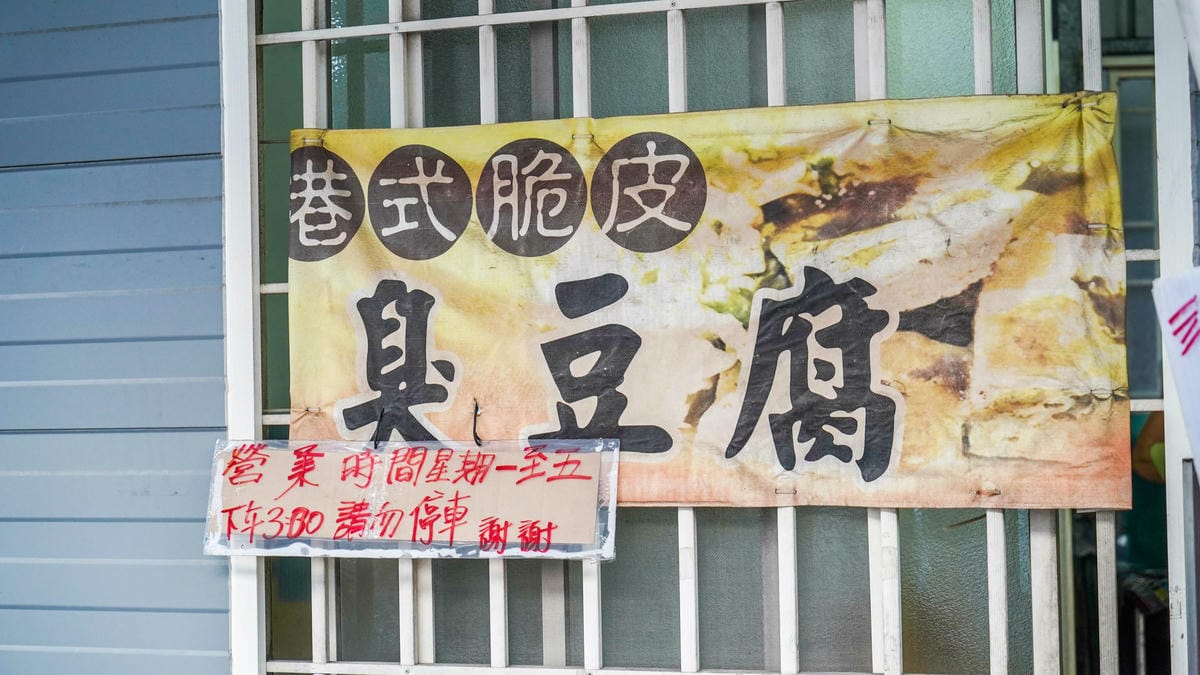 港式脆皮
臭豆腐
營業時間星期一至五
下午3:00請勿停車謝謝